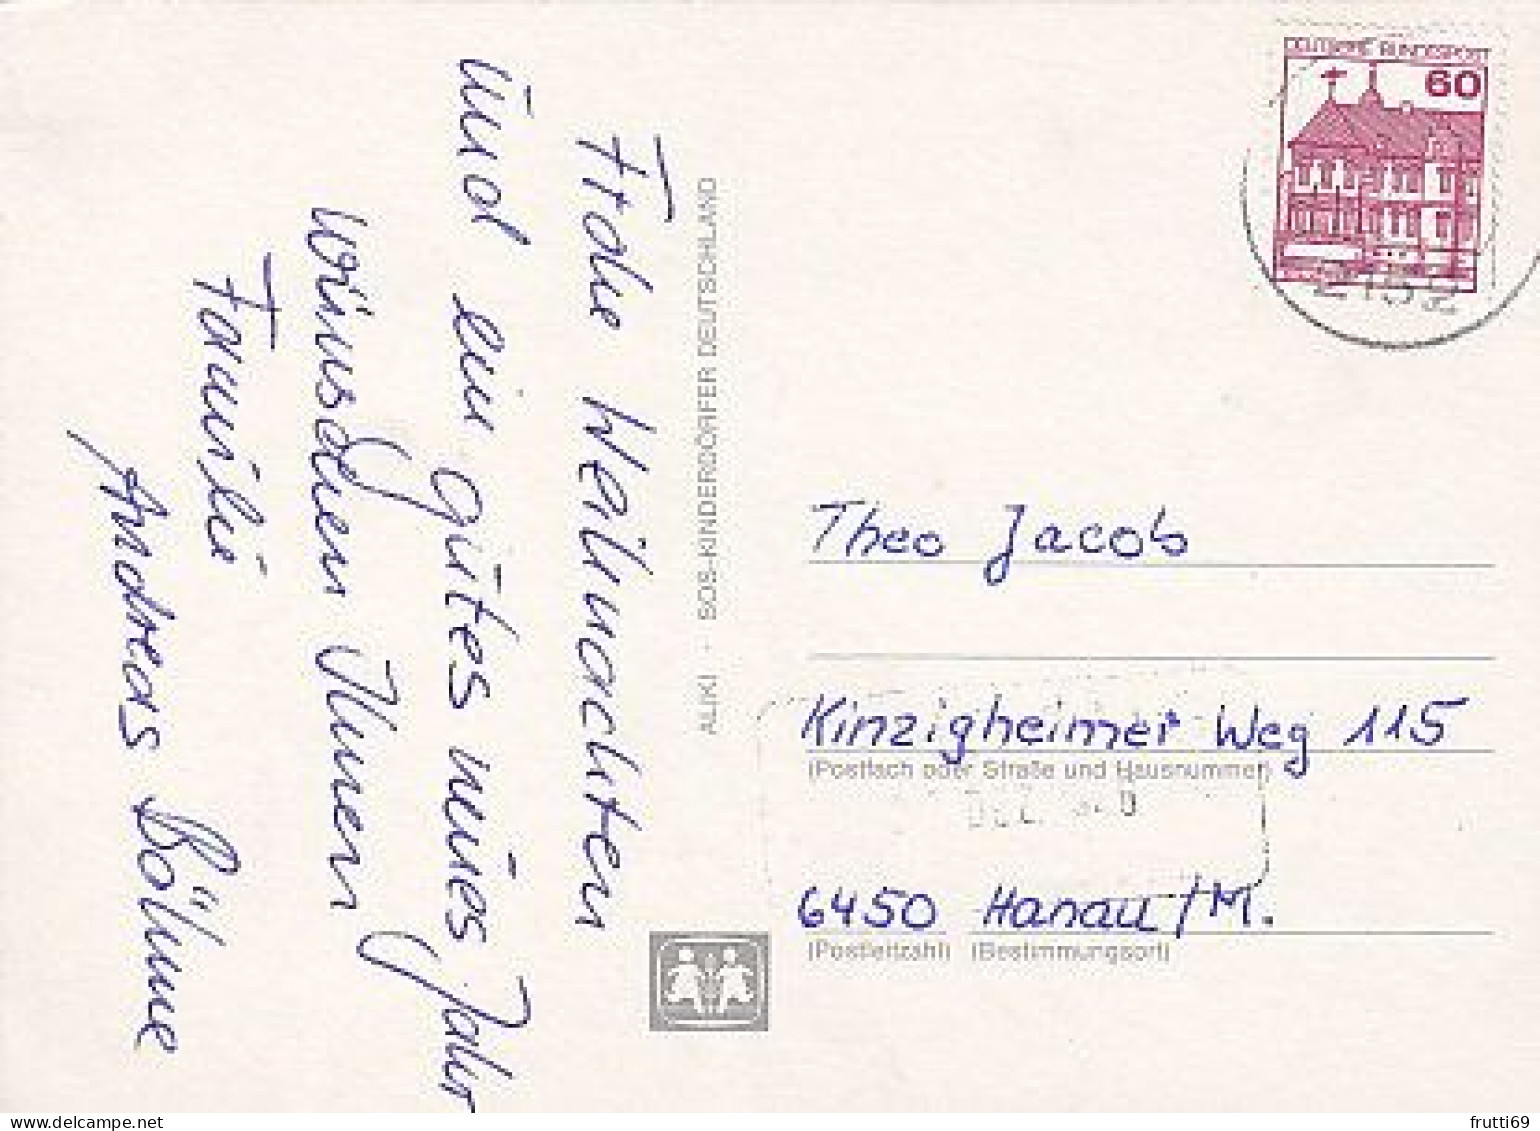 Frohe Weihnachten
und ein gutes neues Jahr
wünschen Ihnen
Familie
Andreas Böhme
ALIKI - SOS-KINDERDÖRFER DEUTSCHLAND
DEUTSCHE BUNDESPOST
60
Theo Jacob
Kinzigheimer Weg 115
(Postfach oder Straße und Hausnummer)
6450 Hanau/M.
(Postleitzahl) (Bestimmungsort)
delcampe.net
frutti69